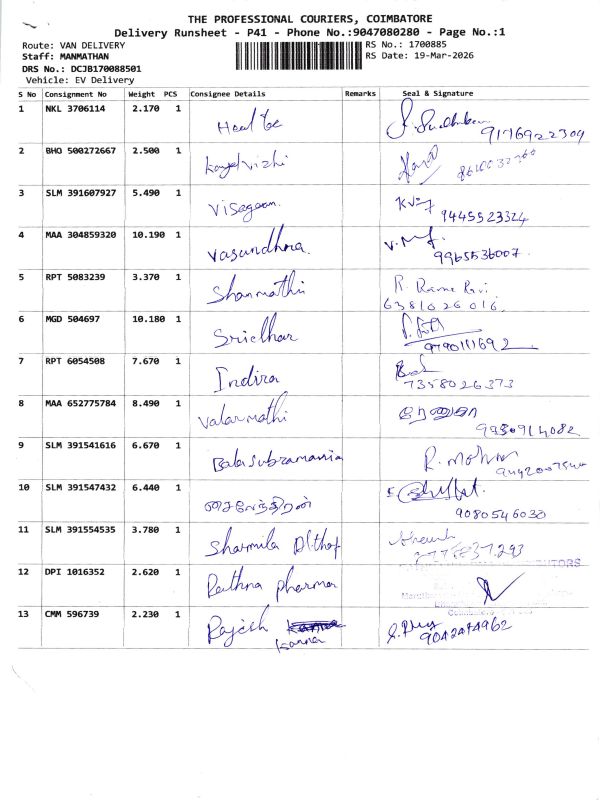 THE PROFESSIONAL COURIERS, COIMBATORE
Delivery Runsheet - P41 - Phone No.:9047080280 - Page No.:1
Route: VAN DELIVERY RS No.: 1700885
Staff: MANMATHAN RS Date: 19-Mar-2026
DRS No.: DCJB170088501
Vehicle: EV Delivery
S No Consignment No Weight PCS Consignee Details Remarks Seal & Signature
1 NKL 3706114 2.170 1
9176922309
2 BHO 500272667 2.500 1
3 SLM 391607927 5.490 1 Visagan.
9445523324
4 MAA 304859320 10.190 1 Vasundhra.
9965536007
5 RPT 5083239 3.370 1 Shanmathi R. Rama Ravi
6381026016
6 MGD 504697 10.180 1 Sridhar
9790111692
7 RPT 6054508 7.670 1 Indira
7358026373
8 MAA 652775784 8.490 1 Valarmathi
9 SLM 391541616 6.670 1 Balasubramania R. Mohan
10 SLM 391547432 6.440 1
9080546030
11 SLM 391554535 3.780 1 Sharmila
12 DPI 1016352 2.620 1 Rathna pharma
13 CMM 596739 2.230 1 Rajesh
kanna